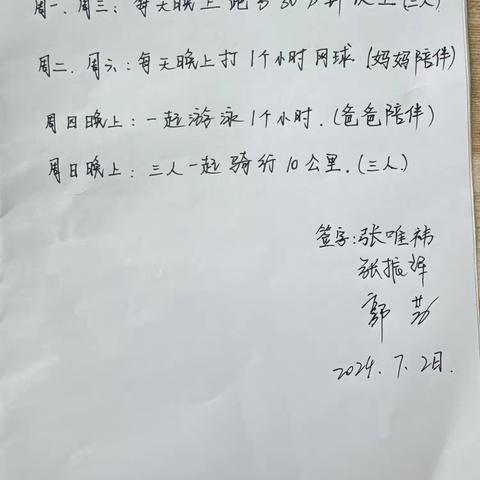 周一、周三：每天晚上跑步30分钟以上(三人)
周二、周六：每天晚上打1个小时网球(妈妈陪伴)
周日晚上：一起游泳1个小时.(爸爸陪伴)
周日晚上：三人一起骑行10公里.(三人)
签字:张唯祎
张振
郭芳
2024.7.2日.